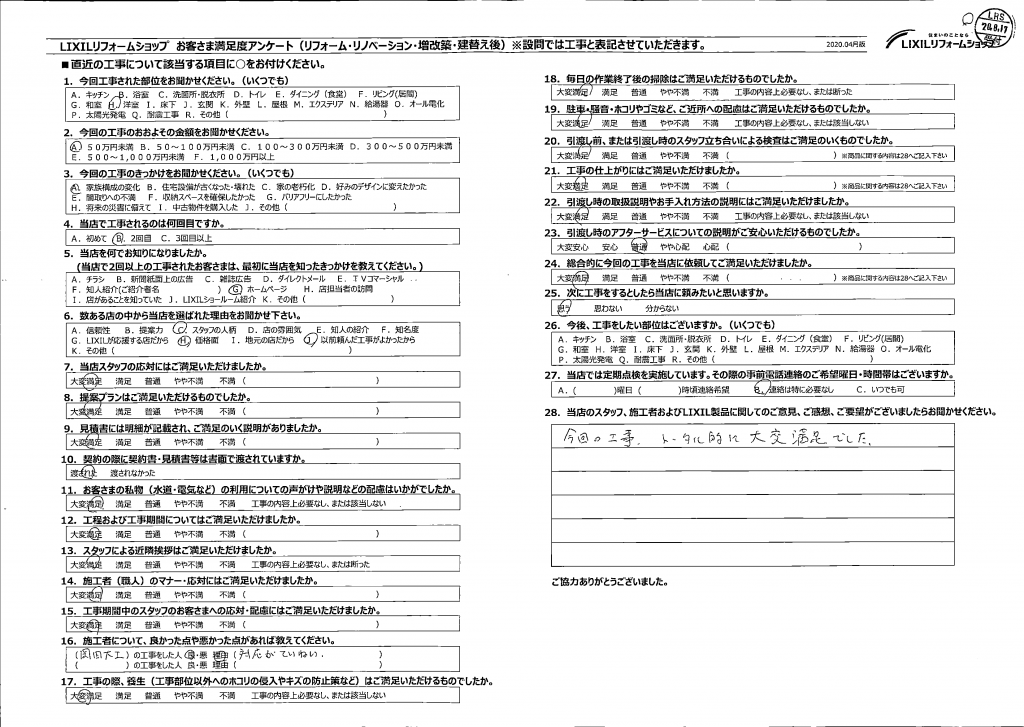 LIXILリフォームショップ お客さま満足度アンケート（リフォーム・リノベーション・増改築・建替え後）※設問では工事と表記させていただきます。
2020.04月版
住まいのことなら
LIXILリフォームショップ
LRS
■直近の工事について該当する項目に○をお付けください。
1. 今回工事された部位をお聞かせください。（いくつでも）
A. キッチン B. 浴室 C. 洗面所・脱衣所 D. トイレ E. ダイニング（食堂） F. リビング(居間)
G. 和室 H. 洋室 I. 床下 J. 玄関 K. 外壁 L. 屋根 M. エクステリア N. 給湯器 O. オール電化
P. 太陽光発電 Q. 耐震工事 R. その他（ ）
2. 今回の工事のおおよその金額をお聞かせください。
A. 50万円未満 B. 50～100万円未満 C. 100～300万円未満 D. 300～500万円未満
E. 500～1,000万円未満 F. 1,000万円以上
3. 今回の工事のきっかけをお聞かせください。（いくつでも）
A. 家族構成の変化 B. 住宅設備が古くなった・壊れた C. 家の老朽化 D. 好みのデザインに変えたかった
E. 間取りへの不満 F. 収納スペースを確保したかった G. バリアフリーにしたかった
H. 将来の災害に備えて I. 中古物件を購入した J. その他（ ）
4. 当店で工事されるのは何回目ですか。
A. 初めて B. 2回目 C. 3回目以上
5. 当店を何でお知りになりましたか。
(当店で2回以上の工事されたお客さまは、最初に当店を知ったきっかけを教えてください。)
A. チラシ B. 新聞紙面上の広告 C. 雑誌広告 D. ダイレクトメール E. TVコマーシャル
F. 知人紹介(ご紹介者名 ) G. ホームページ H. 店担当者の訪問
I. 店があることを知っていた J. LIXILショールーム紹介 K. その他（ ）
6. 数ある店の中から当店を選ばれた理由をお聞かせ下さい。
A. 信頼性 B. 提案力 C. スタッフの人柄 D. 店の雰囲気 E. 知人の紹介 F. 知名度
G. LIXILが応援する店だから H. 価格面 I. 地元の店だから J. 以前頼んだ工事がよかったから
K. その他（ ）
7. 当店スタッフの応対にはご満足いただけましたか。
大変満足 満足 普通 やや不満 不満（ ）
8. 提案プランはご満足いただけるものでしたか。
大変満足 満足 普通 やや不満 不満（ ）
9. 見積書には明細が記載され、ご満足のいく説明がありましたか。
大変満足 満足 普通 やや不満 不満（ ）
10. 契約の際に契約書・見積書等は書面で渡されていますか。
渡された 渡されなかった
11. お客さまの私物（水道・電気など）の利用についての声がけや説明などの配慮はいかがでしたか。
大変満足 満足 普通 やや不満 不満 工事の内容上必要なし、または該当しない
12. 工程および工事期間についてはご満足いただけましたか。
大変満足 満足 普通 やや不満 不満（ ）
13. スタッフによる近隣挨拶はご満足いただけましたか。
大変満足 満足 普通 やや不満 不満 工事の内容上必要なし、または断った
14. 施工者（職人）のマナー・応対にはご満足いただけましたか。
大変満足 満足 普通 やや不満 不満（ ）
15. 工事期間中のスタッフのお客さまへの応対・配慮にはご満足いただけましたか。
大変満足 満足 普通 やや不満 不満（ ）
16. 施工者について、良かった点や悪かった点があれば教えてください。
（岡田大工）の工事をした人 良・悪 理由（対応がていねい. ）
（ ）の工事をした人 良・悪 理由（ ）
17. 工事の際、養生（工事部位以外へのホコリの侵入やキズの防止策など）はご満足いただけるものでしたか。
大変満足 満足 普通 やや不満 不満 工事の内容上必要なし、または該当しない
18. 毎日の作業終了後の掃除はご満足いただけるものでしたか。
大変満足 満足 普通 やや不満 不満 工事の内容上必要なし、または断った
19. 駐車・騒音・ホコリやゴミなど、ご近所への配慮はご満足いただけるものでしたか。
大変満足 満足 普通 やや不満 不満 工事の内容上必要なし、または該当しない
20. 引渡し前、または引渡し時のスタッフ立ち合いによる検査はご満足のいくものでしたか。
大変満足 満足 普通 やや不満 不満（ ）※商品に関する内容は28へご記入下さい
21. 工事の仕上がりにはご満足いただけましたか。
大変満足 満足 普通 やや不満 不満（ ）※商品に関する内容は28へご記入下さい
22. 引渡し時の取扱説明やお手入れ方法の説明にはご満足いただけましたか。
大変満足 満足 普通 やや不満 不満 工事の内容上必要なし、または該当しない
23. 引渡し時のアフターサービスについての説明がご安心いただけるものでしたか。
大変安心 安心 普通 やや心配 心配（ ）
24. 総合的に今回の工事を当店に依頼してご満足いただけましたか。
大変満足 満足 普通 やや不満 不満（ ）※商品に関する内容は28へご記入下さい
25. 次に工事をするとしたら当店に頼みたいと思いますか。
思う 思わない 分からない
26. 今後、工事をしたい部位はございますか。（いくつでも）
A. キッチン B. 浴室 C. 洗面所・脱衣所 D. トイレ E. ダイニング（食堂） F. リビング(居間)
G. 和室 H. 洋室 I. 床下 J. 玄関 K. 外壁 L. 屋根 M. エクステリア N. 給湯器 O. オール電化
P. 太陽光発電 Q. 耐震工事 R. その他（ ）
27. 当店では定期点検を実施しています。その際の事前電話連絡のご希望曜日・時間帯はございますか。
A.（ ）曜日（ ）時頃連絡希望 B. 連絡は特に必要なし C. いつでも可
28. 当店のスタッフ、施工者およびLIXIL製品に関してのご意見、ご感想、ご要望がございましたらお聞かせください。
今回の工事、トータル的に大変満足でした.
ご協力ありがとうございました。